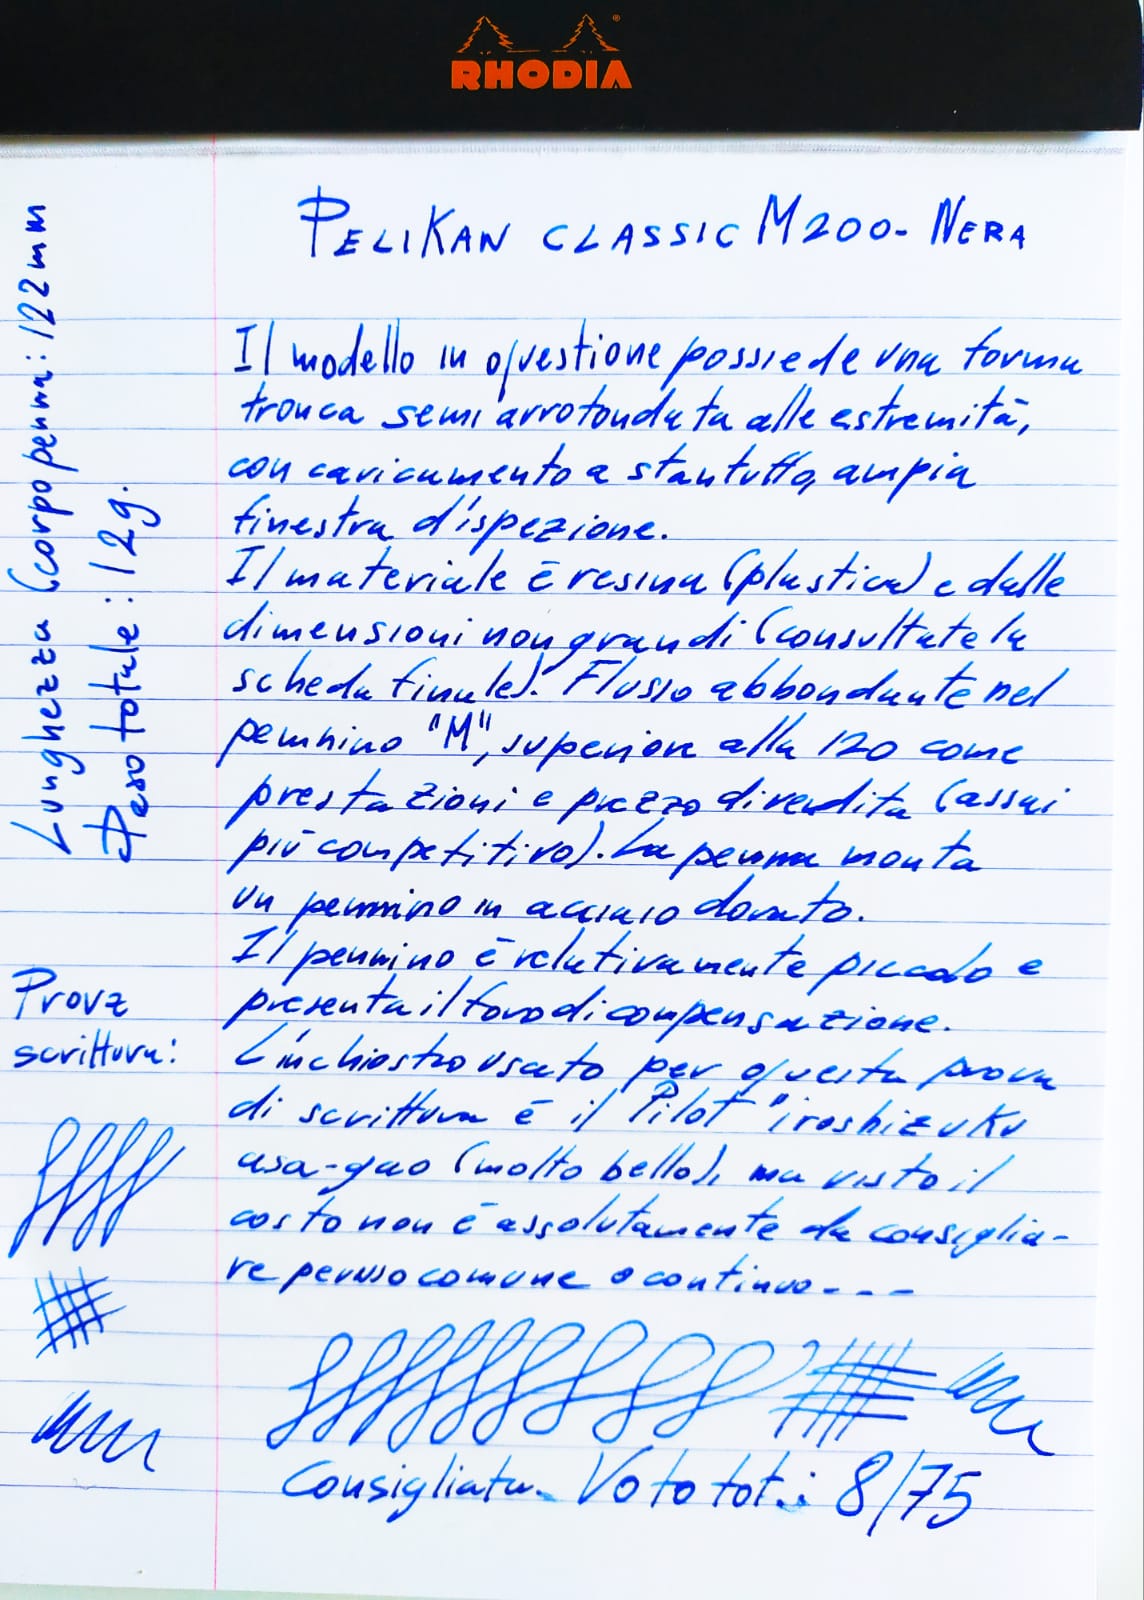 RHODIA
PELIKAN CLASSIC M200 - NERA
Il modello in questione possiede una forma
tronca semi arrotondata alle estremità,
con caricamento a stantuffo, ampia
finestra d'ispezione.
Il materiale è resina (plastica) e dalle
dimensioni non grandi (consultate la
scheda finale). Flusso abbondante nel
pennino "M", superiore alla 120 come
prestazioni e prezzo di vendita (assai
più competitivo). La penna monta
un pennino in acciaio dorato.
Il pennino è relativamente piccolo e
presenta il foro di compensazione.
L'inchiostro usato per questa prova
di scrittura è il Pilot "iroshizuku
asa-gao (molto bello), ma visto il
costo non è assolutamente da consiglia-
re per uso comune o continuo - - -
Consigliata. Voto tot.: 8/75
Lunghezza (corpo penna: 122mm
Peso totale: 12g.
Prova
scrittura: